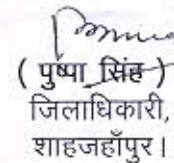 ( पुष्पा सिंह )
जिलाधिकारी,
शाहजहाँपुर।